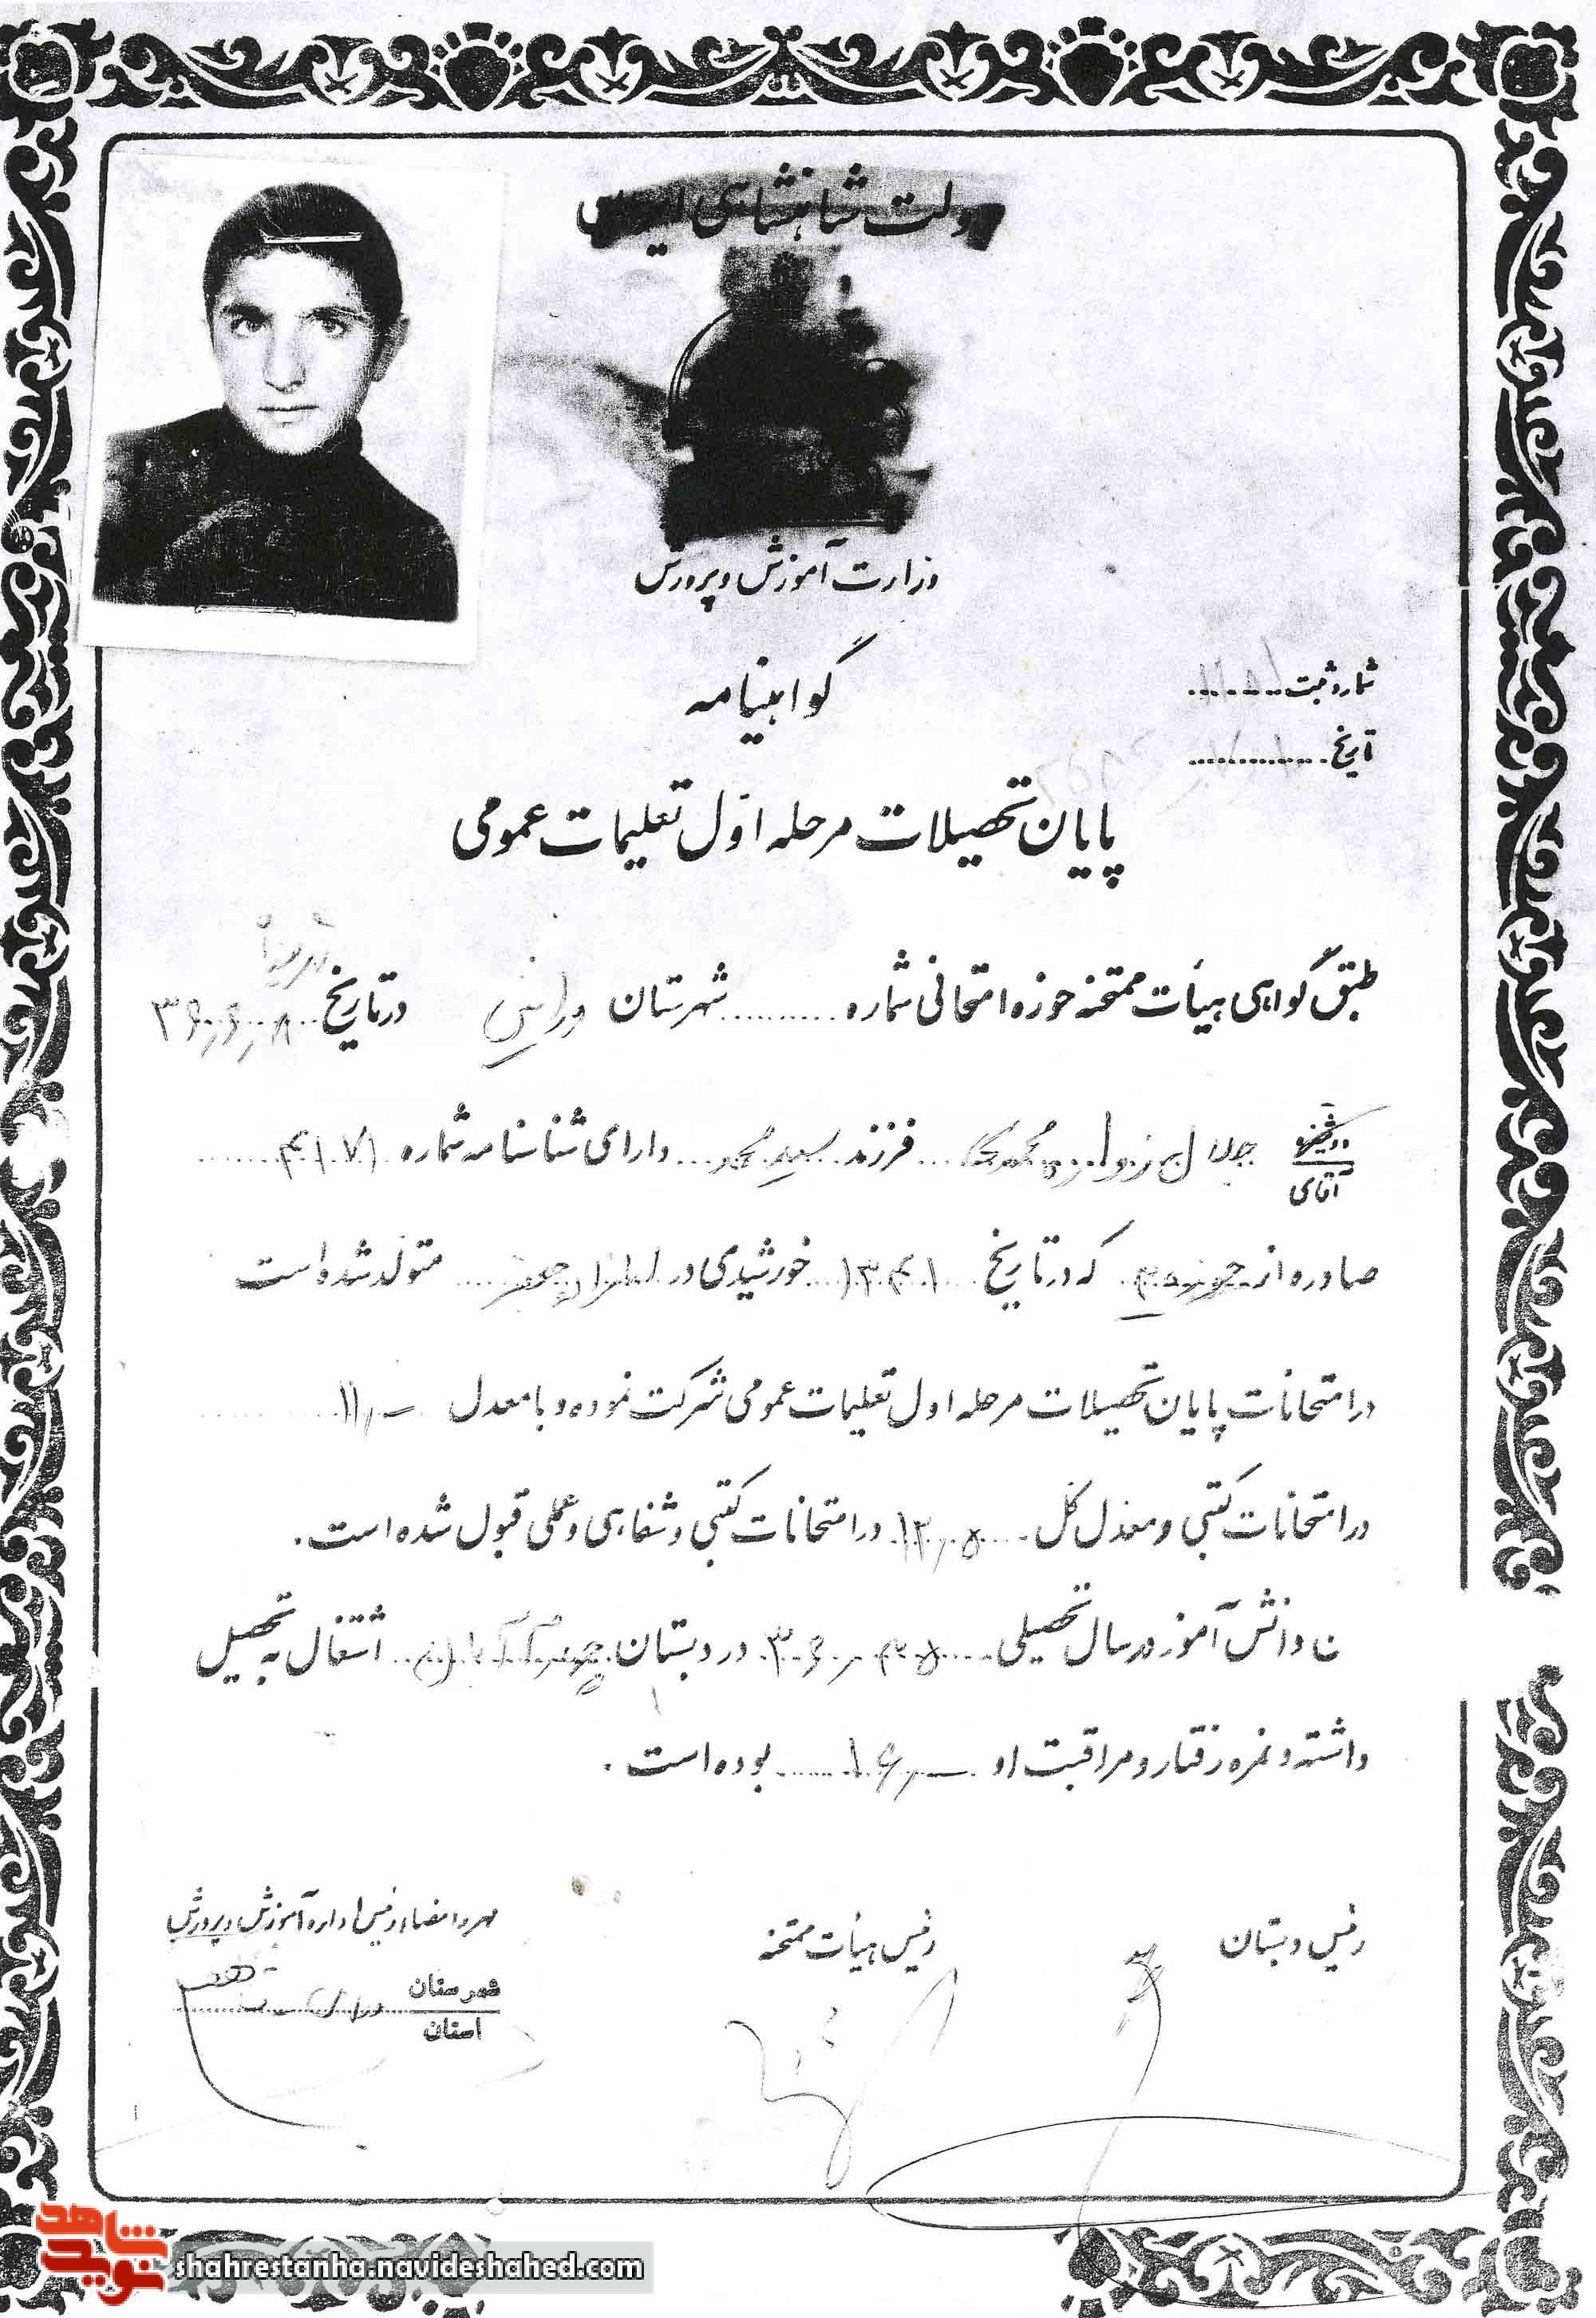 دولت شاهنشاهی ایران
وزارت آموزش و پرورش
شماره ثبت
گواهینامه
تاریخ
پایان تحصیلات مرحله اول تعلیمات عمومی
طبق گواهی هیأت ممتحنه حوزه امتحانی شماره .......... شهرستان ورامین در تاریخ ۳۶٫۶٫۸
دوشیزه
آقای
جلال فرزند سید محمد دارای شناسنامه شماره ۴۱۷۱
صادره از حوزه ۴ که در تاریخ ۱۳۴۱ خورشیدی در متولد شده است
در امتحانات پایان تحصیلات مرحله اول تعلیمات عمومی شرکت نموده و با معدل ۱۱٫-
در امتحانات کتبی و معدل کل ۱۲٫۵۰ در امتحانات کتبی و شفاهی و عملی قبول شده است.
نا دانش آموز در سال تحصیلی در دبستان اشتغال به تحصیل
داشته و نمره رفتار و مراقبت او ۱۶٫- بوده است.
رئیس دبستان
رئیس هیأت ممتحنه
مهر و امضاء رئیس اداره آموزش و پرورش
شهرستان
استان
نوید شاهد
shahrestanha.navideshahed.com